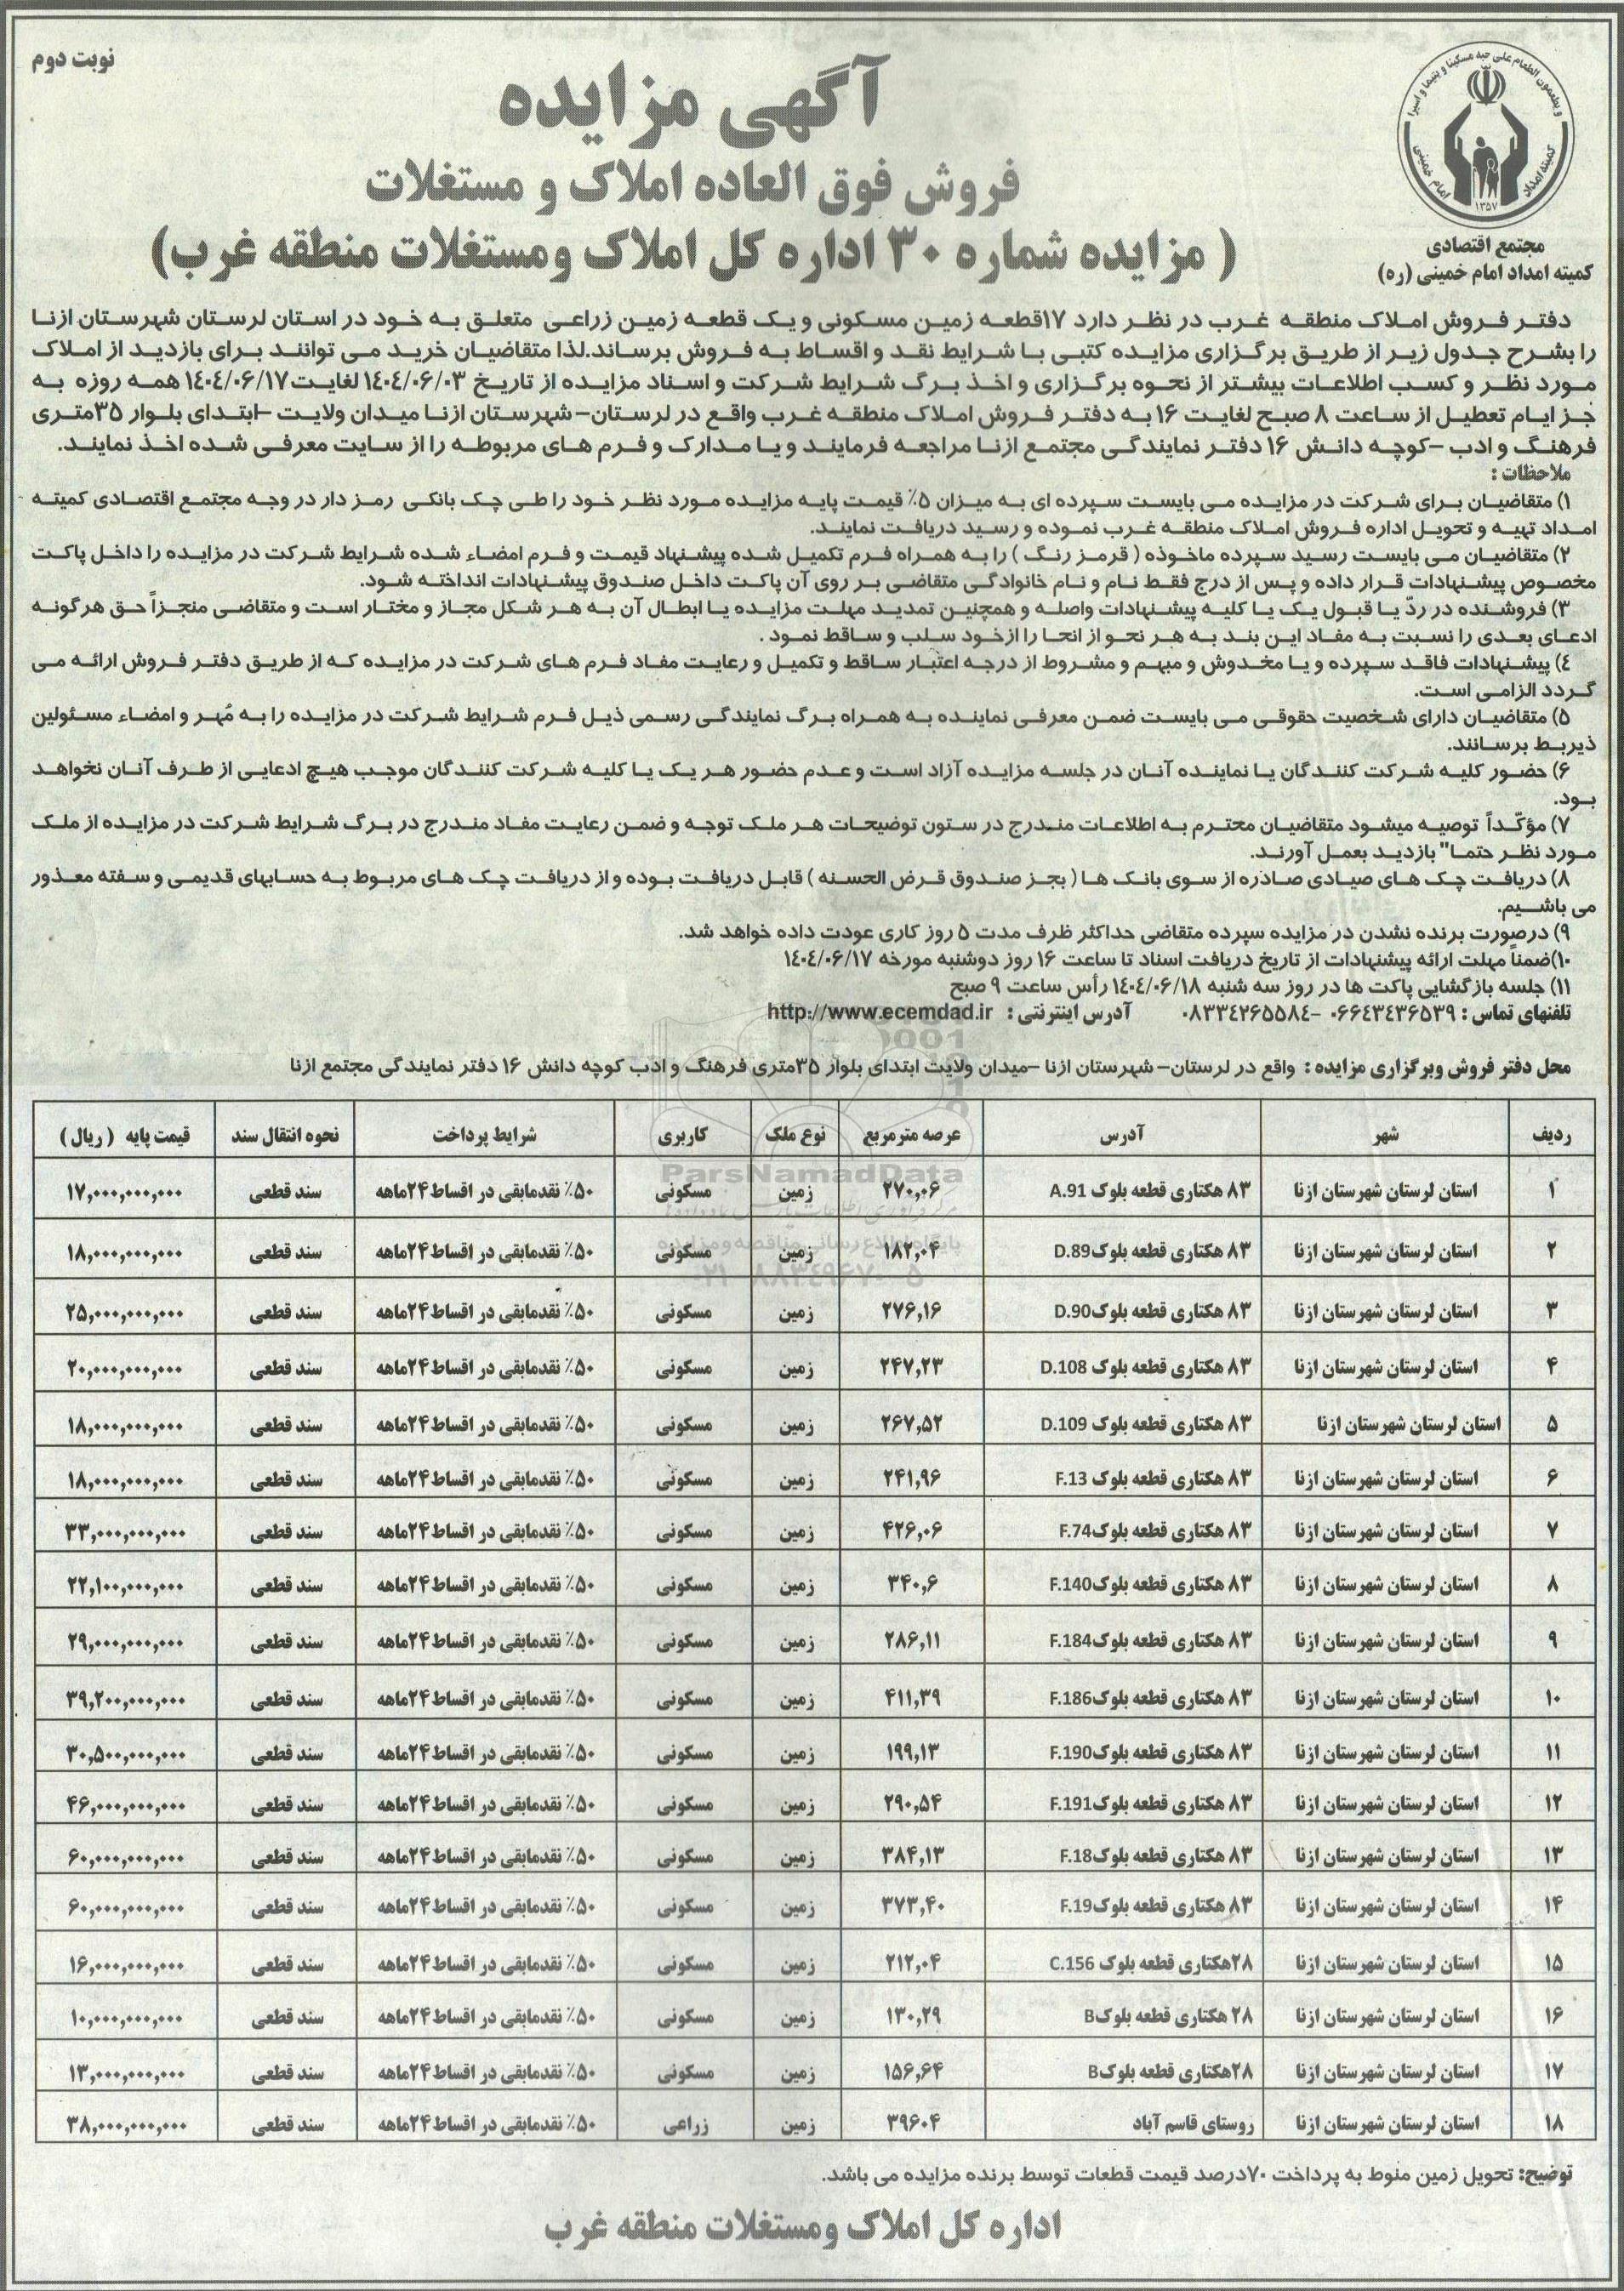 نوبت دوم
و یطعمون الطعام علی حبه مسکینا و یتیما و اسیرا
کمیته امداد امام خمینی
۱۳۵۷
مجتمع اقتصادی
کمیته امداد امام خمینی (ره)
آگهی مزایده
فروش فوق العاده املاک و مستغلات
( مزایده شماره ۳۰ اداره کل املاک ومستغلات منطقه غرب)
دفتر فروش املاک منطقه غرب در نظر دارد ۱۷قطعه زمین مسکونی و یک قطعه زمین زراعی متعلق به خود در استان لرستان شهرستان ازنا
را بشرح جدول زیر از طریق برگزاری مزایده کتبی با شرایط نقد و اقساط به فروش برساند.لذا متقاضیان خرید می توانند برای بازدید از املاک
مورد نظر و کسب اطلاعات بیشتر از نحوه برگزاری و اخذ برگ شرایط شرکت و اسناد مزایده از تاریخ ۱۴۰۴/۰۶/۰۳ لغایت ۱۴۰۴/۰۶/۱۷ همه روزه به
جز ایام تعطیل از ساعت ۸ صبح لغایت ۱۶ به دفتر فروش املاک منطقه غرب واقع در لرستان– شهرستان ازنا میدان ولایت –ابتدای بلوار ۳۵متری
فرهنگ و ادب –کوچه دانش ۱۶ دفتر نمایندگی مجتمع ازنا مراجعه فرمایند و یا مدارک و فرم های مربوطه را از سایت معرفی شده اخذ نمایند.
ملاحظات :
۱) متقاضیان برای شرکت در مزایده می بایست سپرده ای به میزان ۵٪ قیمت پایه مزایده مورد نظر خود را طی چک بانکی رمز دار در وجه مجتمع اقتصادی کمیته
امداد تهیه و تحویل اداره فروش املاک منطقه غرب نموده و رسید دریافت نمایند.
۲) متقاضیان می بایست رسید سپرده ماخوذه ( قرمز رنگ ) را به همراه فرم تکمیل شده پیشنهاد قیمت و فرم امضاء شده شرایط شرکت در مزایده را داخل پاکت
مخصوص پیشنهادات قرار داده و پس از درج فقط نام و نام خانوادگی متقاضی بر روی آن پاکت داخل صندوق پیشنهادات انداخته شود.
۳) فروشنده در ردّ یا قبول یک یا کلیه پیشنهادات واصله و همچنین تمدید مهلت مزایده یا ابطال آن به هر شکل مجاز و مختار است و متقاضی منجزاً حق هرگونه
ادعای بعدی را نسبت به مفاد این بند به هر نحو از انحا را ازخود سلب و ساقط نمود .
۴) پیشنهادات فاقد سپرده و یا مخدوش و مبهم و مشروط از درجه اعتبار ساقط و تکمیل و رعایت مفاد فرم های شرکت در مزایده که از طریق دفتر فروش ارائه می
گردد الزامی است.
۵) متقاضیان دارای شخصیت حقوقی می بایست ضمن معرفی نماینده به همراه برگ نمایندگی رسمی ذیل فرم شرایط شرکت در مزایده را به مُهر و امضاء مسئولین
ذیربط برسانند.
۶) حضور کلیه شرکت کنندگان یا نماینده آنان در جلسه مزایده آزاد است و عدم حضور هر یک یا کلیه شرکت کنندگان موجب هیچ ادعایی از طرف آنان نخواهد
بود.
۷) مؤکّداً توصیه میشود متقاضیان محترم به اطلاعات مندرج در ستون توضیحات هر ملک توجه و ضمن رعایت مفاد مندرج در برگ شرایط شرکت در مزایده از ملک
مورد نظر حتما" بازدید بعمل آورند.
۸) دریافت چک های صیادی صادره از سوی بانک ها ( بجز صندوق قرض الحسنه ) قابل دریافت بوده و از دریافت چک های مربوط به حسابهای قدیمی و سفته معذور
می باشیم.
۹) درصورت برنده نشدن در مزایده سپرده متقاضی حداکثر ظرف مدت ۵ روز کاری عودت داده خواهد شد.
۱۰)ضمناً مهلت ارائه پیشنهادات از تاریخ دریافت اسناد تا ساعت ۱۶ روز دوشنبه مورخه ۱۴۰۴/۰۶/۱۷
۱۱) جلسه بازگشایی پاکت ها در روز سه شنبه ۱۴۰۴/۰۶/۱۸ رأس ساعت ۹ صبح
تلفنهای تماس : ۰۶۶۴۳۴۳۶۵۳۹ -۰۸۳۳۴۲۶۵۵۸۴ آدرس اینترنتی : http://www.ecemdad.ir
محل دفتر فروش وبرگزاری مزایده : واقع در لرستان– شهرستان ازنا –میدان ولایت ابتدای بلوار ۳۵متری فرهنگ و ادب کوچه دانش ۱۶ دفتر نمایندگی مجتمع ازنا
ردیف شهر آدرس عرصه مترمربع نوع ملک کاربری شرایط پرداخت نحوه انتقال سند قیمت پایه ( ریال )
۱ استان لرستان شهرستان ازنا ۸۳ هکتاری قطعه بلوک A.91 ۲۷۰,۰۶ زمین مسکونی ۵۰٪ نقدمابقی در اقساط۲۴ماهه سند قطعی ۱۷,۰۰۰,۰۰۰,۰۰۰
۲ استان لرستان شهرستان ازنا ۸۳ هکتاری قطعه بلوکD.89 ۱۸۲,۰۴ زمین مسکونی ۵۰٪ نقدمابقی در اقساط۲۴ماهه سند قطعی ۱۸,۰۰۰,۰۰۰,۰۰۰
۳ استان لرستان شهرستان ازنا ۸۳ هکتاری قطعه بلوکD.90 ۲۷۶,۱۶ زمین مسکونی ۵۰٪ نقدمابقی در اقساط۲۴ماهه سند قطعی ۲۵,۰۰۰,۰۰۰,۰۰۰
۴ استان لرستان شهرستان ازنا ۸۳ هکتاری قطعه بلوک D.108 ۲۴۷,۲۳ زمین مسکونی ۵۰٪ نقدمابقی در اقساط۲۴ماهه سند قطعی ۲۰,۰۰۰,۰۰۰,۰۰۰
۵ استان لرستان شهرستان ازنا ۸۳ هکتاری قطعه بلوک D.109 ۲۶۷,۵۲ زمین مسکونی ۵۰٪ نقدمابقی در اقساط۲۴ماهه سند قطعی ۱۸,۰۰۰,۰۰۰,۰۰۰
۶ استان لرستان شهرستان ازنا ۸۳ هکتاری قطعه بلوک F.13 ۲۴۱,۹۶ زمین مسکونی ۵۰٪ نقدمابقی در اقساط۲۴ماهه سند قطعی ۱۸,۰۰۰,۰۰۰,۰۰۰
۷ استان لرستان شهرستان ازنا ۸۳ هکتاری قطعه بلوکF.74 ۴۲۶,۰۶ زمین مسکونی ۵۰٪ نقدمابقی در اقساط۲۴ماهه سند قطعی ۳۳,۰۰۰,۰۰۰,۰۰۰
۸ استان لرستان شهرستان ازنا ۸۳ هکتاری قطعه بلوکF.140 ۳۴۰,۶ زمین مسکونی ۵۰٪ نقدمابقی در اقساط۲۴ماهه سند قطعی ۲۲,۱۰۰,۰۰۰,۰۰۰
۹ استان لرستان شهرستان ازنا ۸۳ هکتاری قطعه بلوکF.184 ۲۸۶,۱۱ زمین مسکونی ۵۰٪ نقدمابقی در اقساط۲۴ماهه سند قطعی ۲۹,۰۰۰,۰۰۰,۰۰۰
۱۰ استان لرستان شهرستان ازنا ۸۳ هکتاری قطعه بلوکF.186 ۴۱۱,۳۹ زمین مسکونی ۵۰٪ نقدمابقی در اقساط۲۴ماهه سند قطعی ۳۹,۲۰۰,۰۰۰,۰۰۰
۱۱ استان لرستان شهرستان ازنا ۸۳ هکتاری قطعه بلوکF.190 ۱۹۹,۱۳ زمین مسکونی ۵۰٪ نقدمابقی در اقساط۲۴ماهه سند قطعی ۳۰,۵۰۰,۰۰۰,۰۰۰
۱۲ استان لرستان شهرستان ازنا ۸۳ هکتاری قطعه بلوکF.191 ۲۹۰,۵۴ زمین مسکونی ۵۰٪ نقدمابقی در اقساط۲۴ماهه سند قطعی ۴۶,۰۰۰,۰۰۰,۰۰۰
۱۳ استان لرستان شهرستان ازنا ۸۳ هکتاری قطعه بلوکF.18 ۳۸۴,۱۳ زمین مسکونی ۵۰٪ نقدمابقی در اقساط۲۴ماهه سند قطعی ۶۰,۰۰۰,۰۰۰,۰۰۰
۱۴ استان لرستان شهرستان ازنا ۸۳ هکتاری قطعه بلوکF.19 ۳۷۳,۴۰ زمین مسکونی ۵۰٪ نقدمابقی در اقساط۲۴ماهه سند قطعی ۶۰,۰۰۰,۰۰۰,۰۰۰
۱۵ استان لرستان شهرستان ازنا ۲۸هکتاری قطعه بلوک C.156 ۲۱۲,۰۴ زمین مسکونی ۵۰٪ نقدمابقی در اقساط۲۴ماهه سند قطعی ۱۶,۰۰۰,۰۰۰,۰۰۰
۱۶ استان لرستان شهرستان ازنا ۲۸ هکتاری قطعه بلوکB ۱۳۰,۲۹ زمین مسکونی ۵۰٪ نقدمابقی در اقساط۲۴ماهه سند قطعی ۱۰,۰۰۰,۰۰۰,۰۰۰
۱۷ استان لرستان شهرستان ازنا ۲۸هکتاری قطعه بلوکB ۱۵۶,۶۴ زمین مسکونی ۵۰٪ نقدمابقی در اقساط۲۴ماهه سند قطعی ۱۳,۰۰۰,۰۰۰,۰۰۰
۱۸ استان لرستان شهرستان ازنا روستای قاسم آباد ۳۹۶۰۴ زمین زراعی ۵۰٪ نقدمابقی در اقساط۲۴ماهه سند قطعی ۳۸,۰۰۰,۰۰۰,۰۰۰
ParsNamadData
پایگاه اطلاع رسانی مناقصه و مزایده
۰۲۱-۸۸۳۴۹۶۷۰-۵
توضیح: تحویل زمین منوط به پرداخت ۷۰درصد قیمت قطعات توسط برنده مزایده می باشد.
اداره کل املاک ومستغلات منطقه غرب